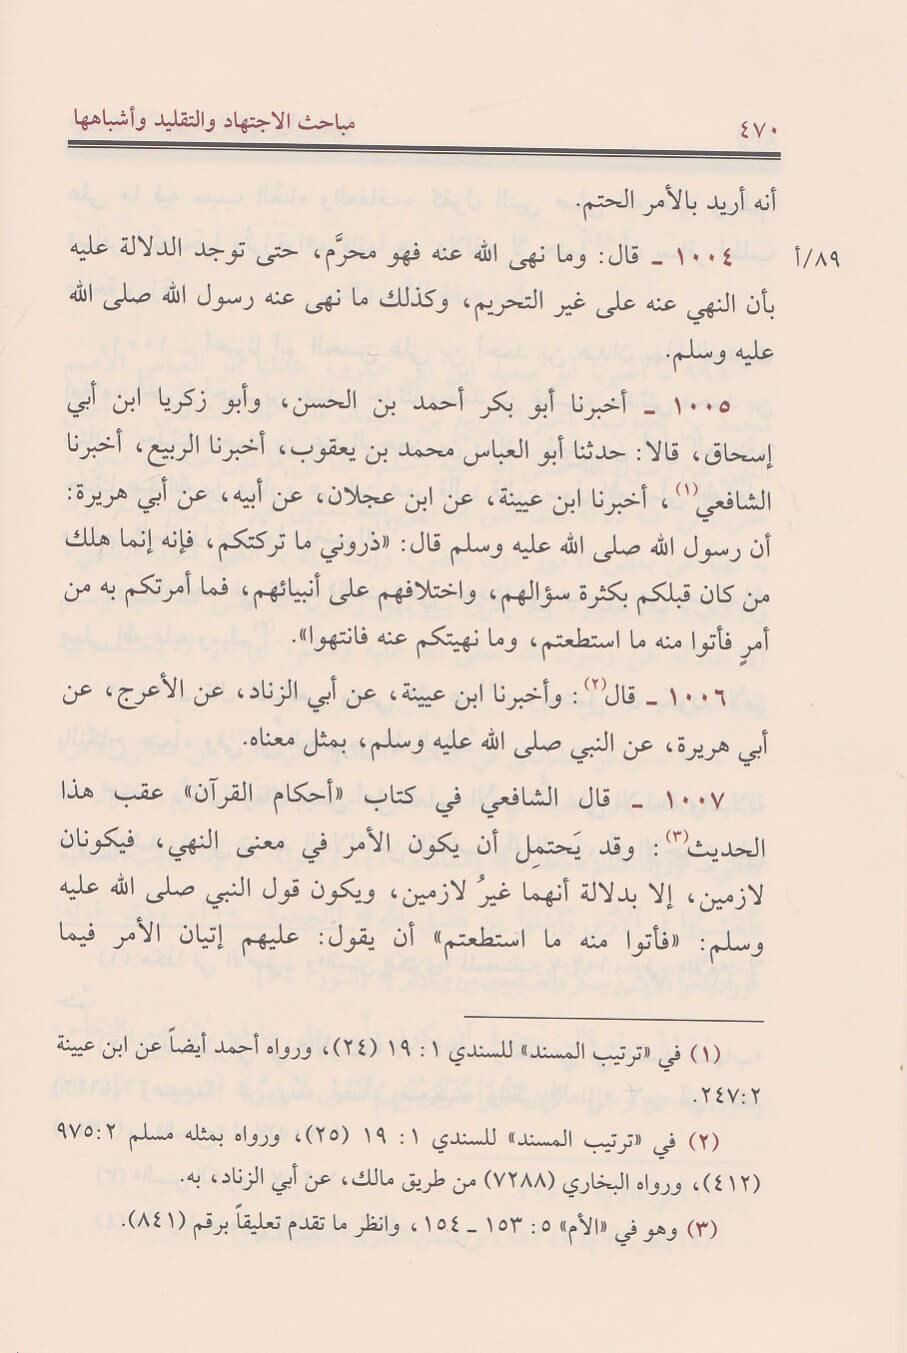 ٤٧٠ مباحث الاجتهاد والتقليد وأشباهها
أنه أريد بالأمر الحتم.
٨٩/أ ١٠٠٤ ـ قال: وما نهى الله عنه فهو محرَّم، حتى توجد الدلالة عليه
بأن النهي عنه على غير التحريم، وكذلك ما نهى عنه رسول الله صلى الله
عليه وسلم.
١٠٠٥ ـ أخبرنا أبو بكر أحمد بن الحسن، وأبو زكريا ابن أبي
إسحاق، قالا: حدثنا أبو العباس محمد بن يعقوب، أخبرنا الربيع، أخبرنا
الشافعي(١)، أخبرنا ابن عيينة، عن ابن عجلان، عن أبيه، عن أبي هريرة:
أن رسول الله صلى الله عليه وسلم قال: «ذروني ما تركتكم، فإنه إنما هلك
من كان قبلكم بكثرة سؤالهم، واختلافهم على أنبيائهم، فما أمرتكم به من
أمرٍ فأتوا منه ما استطعتم، وما نهيتكم عنه فانتهوا».
١٠٠٦ ـ قال(٢): وأخبرنا ابن عيينة، عن أبي الزناد، عن الأعرج، عن
أبي هريرة، عن النبي صلى الله عليه وسلم، بمثل معناه.
١٠٠٧ ـ قال الشافعي في كتاب «أحكام القرآن» عقب هذا
الحديث(٣): وقد يَحتمِل أن يكون الأمر في معنى النهي، فيكونان
لازمين، إلا بدلالة أنهما غيرُ لازمين، ويكون قول النبي صلى الله عليه
وسلم: «فأتوا منه ما استطعتم» أن يقول: عليهم إتيان الأمر فيما
(١) في «ترتيب المسند» للسندي ١: ١٩ (٢٤)، ورواه أحمد أيضاً عن ابن عيينة
٢٤٧:٢.
(٢) في «ترتيب المسند» للسندي ١: ١٩ (٢٥)، ورواه بمثله مسلم ٩٧٥:٢
(٤١٢)، ورواه البخاري (٧٢٨٨) من طريق مالك، عن أبي الزناد، به.
(٣) وهو في «الأم» ٥: ١٥٣ ـ ١٥٤، وانظر ما تقدم تعليقاً برقم (٨٤١).